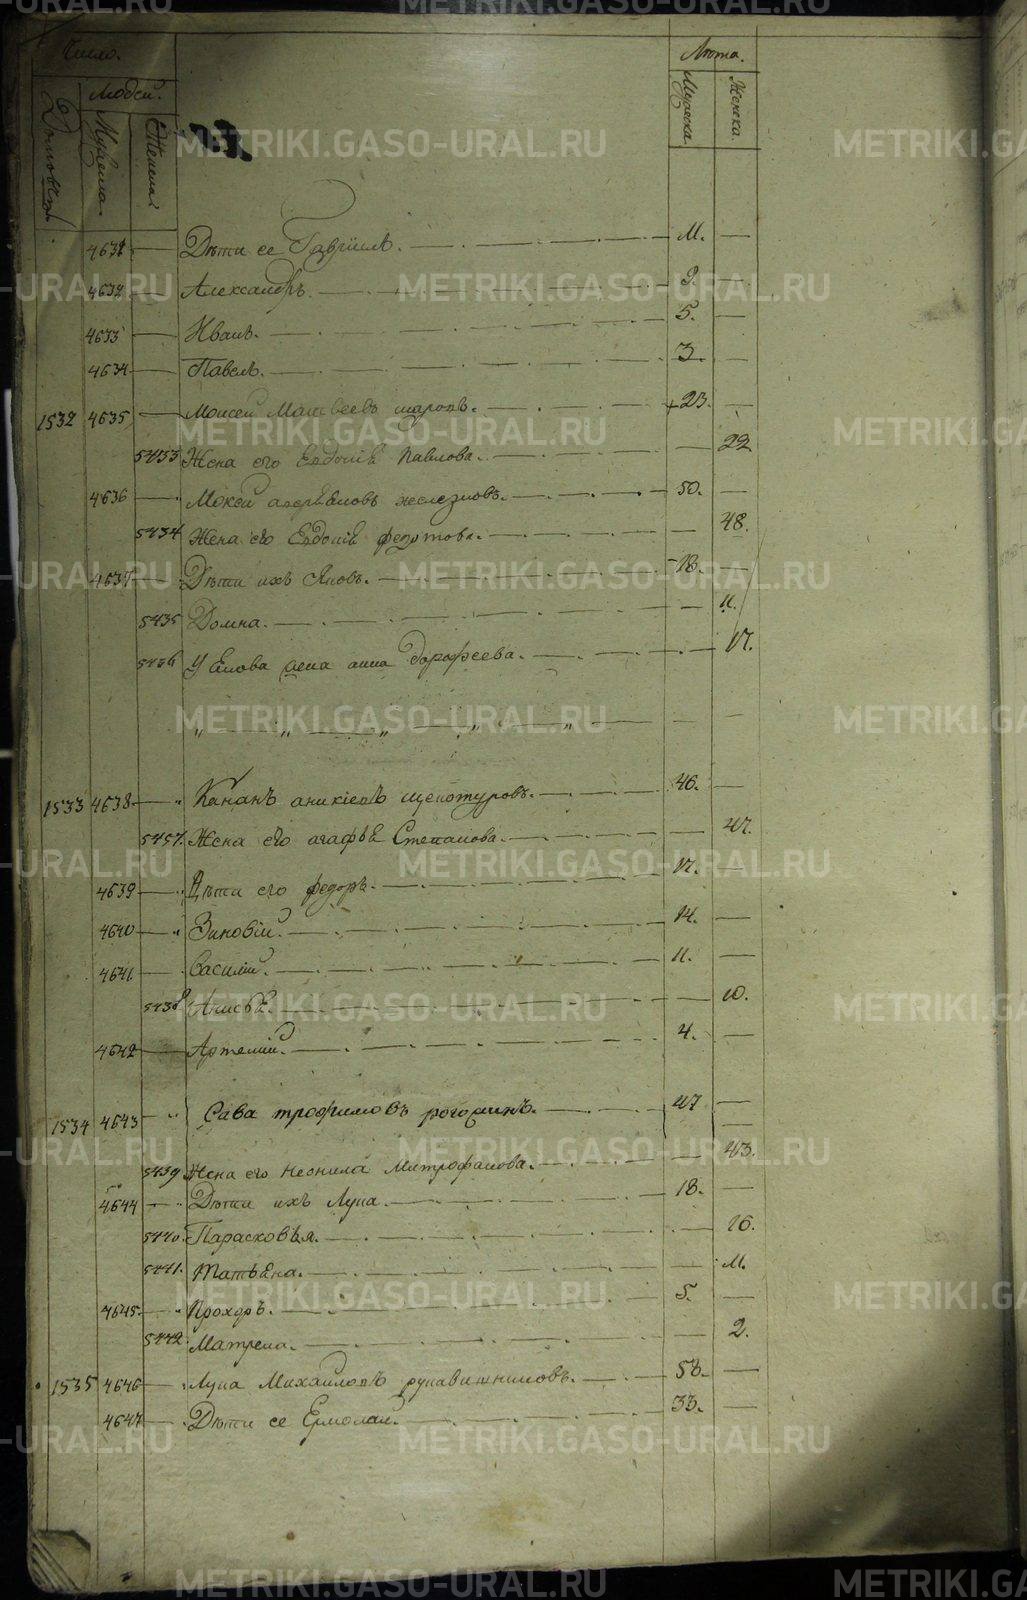 Число.
Лѣта.
Людей.
Домовъ
Мужеска.
Женска.
Мужеска
Женска.
4631 Дѣти ее Гавріилъ. 11.
4632 Александръ. 9.
4633 Иванъ. 5.
4634 Павелъ. 3.
1532 4635 Моисей Матвеевъ 23.
5433 Жена его Евдокія Павлова. 22
4636 Мокей железновъ. 50.
5434 Жена его Евдокія федотова. 48.
4637 Дѣти ихъ 18.
5435 Домна. 11.
5436 У жена анна дорофеева. 17.
1533 4638 аникіевъ щепотуровъ. 46.
5437 Жена его агафья Степанова. 47.
4639 Дѣти его федоръ. 17.
4640 Зиновій. 14.
4641 Василій. 11.
5438 Анисья. 10.
4642 Артемій. 4.
1534 4643 Сава трофимовъ рогожинъ. 47
5439 Жена его неонила Митрофанова. 43.
4644 Дѣти ихъ Лупа. 18.
5440 Парасковья. 16.
5441 Татьяна. 11.
4645 Прохоръ. 5.
5442 Матрена. 2.
1535 4646 Лупа Михаиловъ рукавишниковъ. 58.
4647 Дѣти ее Ермолай. 33.
METRIKI.GASO-URAL.RU